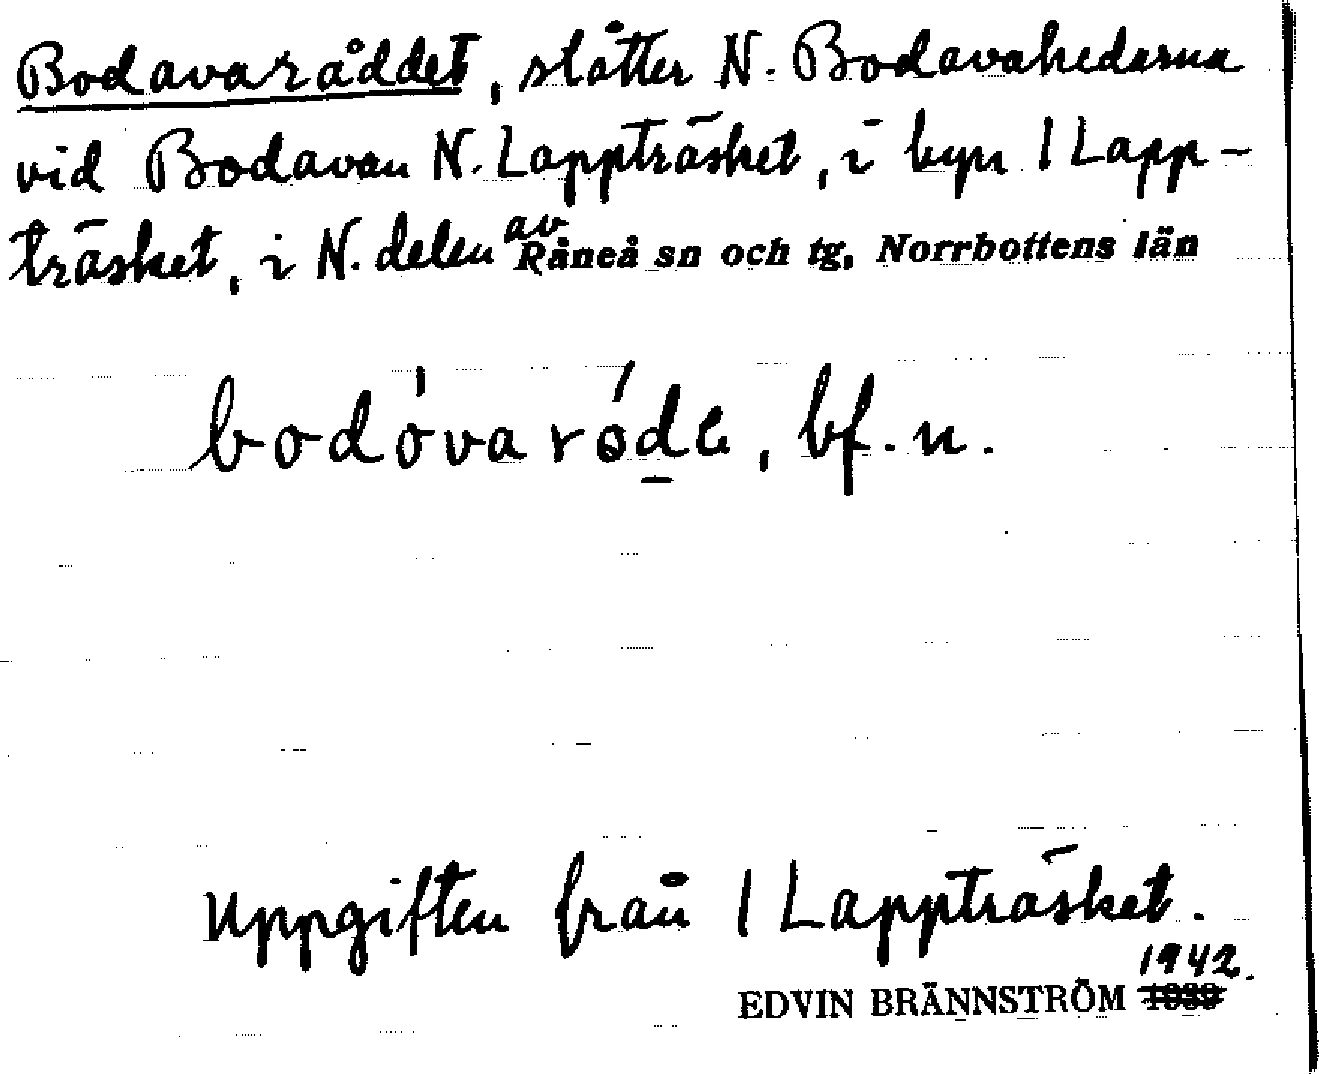 Bodavaråddet, slåtter N. Bodavahedarna
vid Bodavan N. Lappträsket, i byn 1 Lapp-
träsket, i N. delen av Råneå sn och tg, Norrbottens län
bodóvaróde, bf. n.
Uppgiften från 1 Lappträsket.
1942.
EDVIN BRÄNNSTRÖM 1939